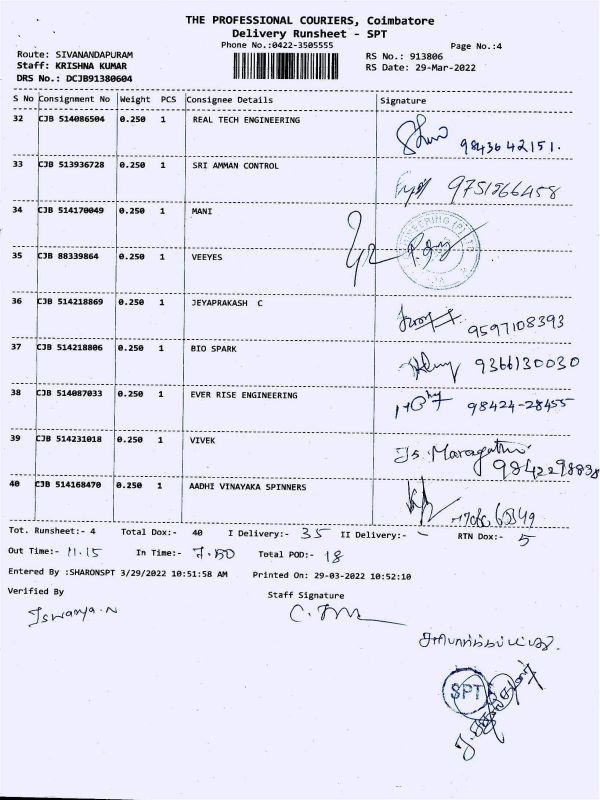 THE PROFESSIONAL COURIERS, Coimbatore
Delivery Runsheet - SPT
Phone No.:0422-3505555 Page No.:4
Route: SIVANANDAPURAM RS No.: 913806
Staff: KRISHNA KUMAR RS Date: 29-Mar-2022
DRS No.: DCJB91380604
S No Consignment No Weight PCS Consignee Details Signature
32 CJB 514086504 0.250 1 REAL TECH ENGINEERING 9843642151.
33 CJB 513936728 0.250 1 SRI AMMAN CONTROL 9751266458
34 CJB 514170049 0.250 1 MANI
35 CJB 88339864 0.250 1 VEEYES
36 CJB 514218869 0.250 1 JEYAPRAKASH C 9597108393
37 CJB 514218806 0.250 1 BIO SPARK 9366130030
38 CJB 514087033 0.250 1 EVER RISE ENGINEERING 98424-28455
39 CJB 514231018 0.250 1 VIVEK Ts. Maragatham 9842298838
40 CJB 514168470 0.250 1 AADHI VINAYAKA SPINNERS
Tot. Runsheet:- 4 Total Dox:- 40 I Delivery:- 35 II Delivery:- - RTN Dox:- 5
Out Time:- 11.15 In Time:- 7.50 Total POD:- 18
Entered By :SHARONSPT 3/29/2022 10:51:58 AM Printed On: 29-03-2022 10:52:10
Verified By Staff Signature
Iswarya.N
SPT